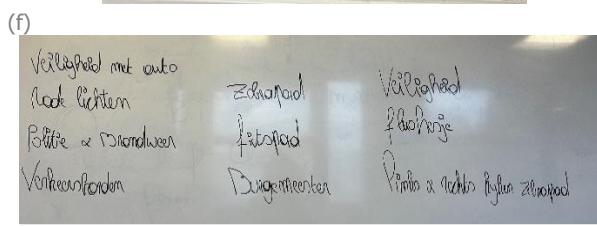 (f)
Veiligheid met auto
Rode lichten
Politie & Brandweer
Verkeersborden
Zebrapad
fietspad
Burgemeester
Veiligheid
fluohesje
links & rechts kijken zebrapad